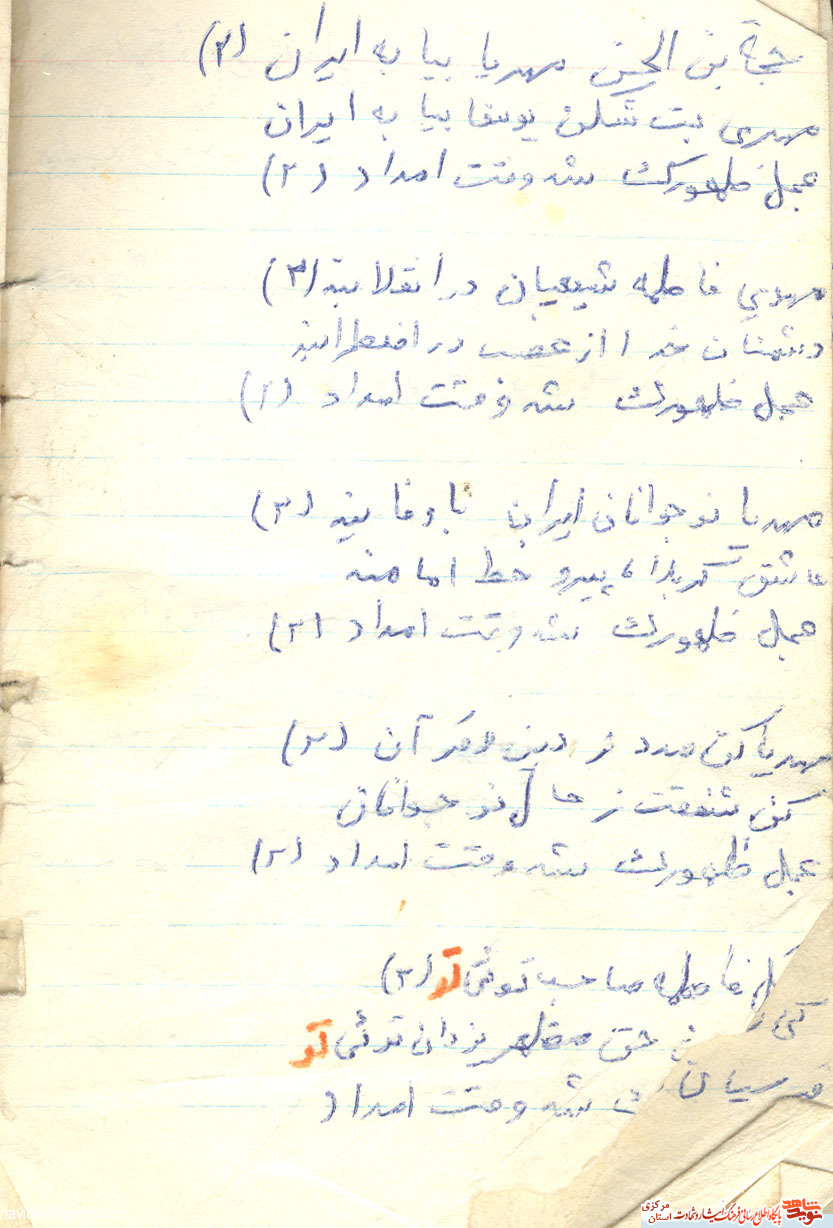 حجة بن الحسن مهدیا بیا به ایران (۲)
مهدی بت شکن یوسفا بیا به ایران
عجل ظهورک شد وقت امداد (۲)
مهدی فاطمه شیعیان در انقلابند (۲)
دشمنان خدا از غضب در اضطرابند
عجل ظهورک شد وقت امداد (۲)
مهدیا نوجوانان ایران باوفایند (۲)
عاشق کربلا، پیرو خط امامند
عجل ظهورک شد وقت امداد (۲)
مهدیا کن مدد از دین و قرآن (۲)
کن شفقت ز حال نوجوانان
عجل ظهورک شد وقت امداد (۲)
گل فاطمه صاحب توئی تو (۲)
حق مظهر یزدان توئی تو
شد وقت امداد
پایگاه اطلاع رسانی فرهنگ ایثار و شهادت استان مرکزی
نوید شاهد